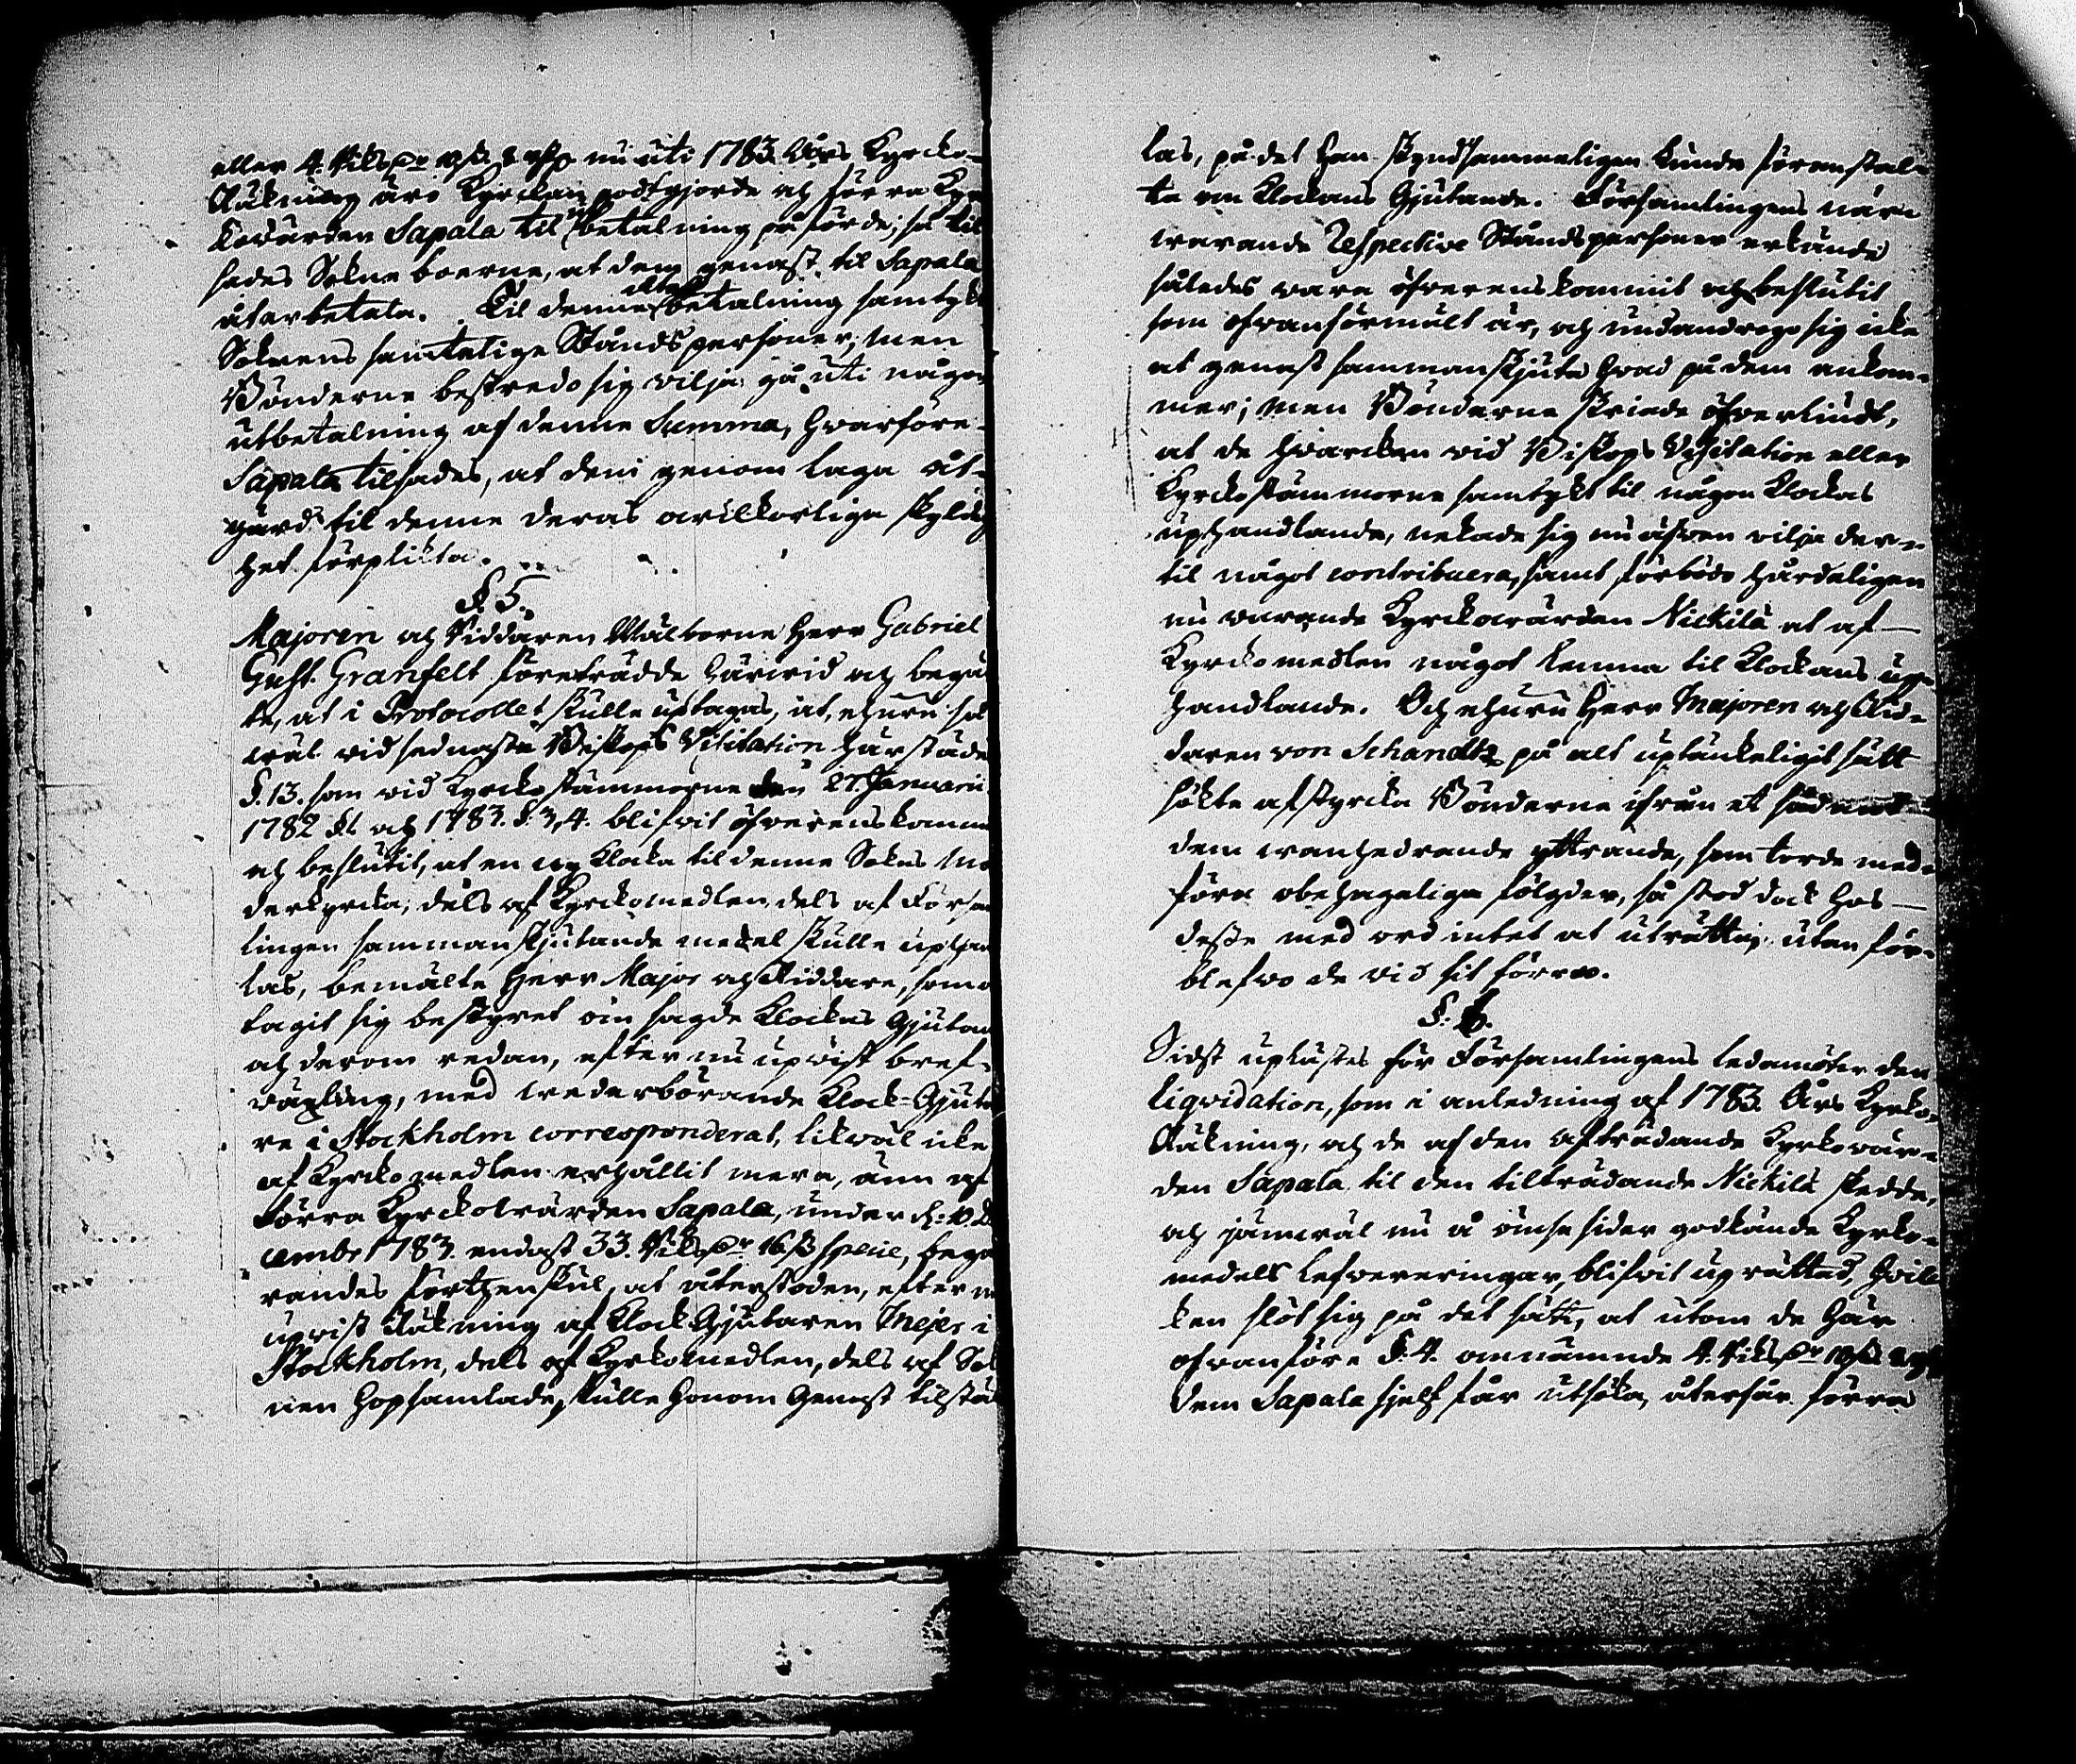 eller 4. Riksdr 10 s. 8 rst nu uti 1783 Års Kyrcko-
Räkning äro Kyrckan godtgjorde och förra Kyr
kowärden Sapala til betalning påförde; så til
sades Sokneboerne, at dem genast til Sapala
återbetala. Til denne betalning samtykt
Soknens samtelige Ståndspersoner; men
Bönderne bestredo sig vilja gå uti någon
utbetalning af denne Summa, hvarföre
Sapala tilsades, at dem genom laga åt-
gärd til denne deras ovilkorliga skyldig
het förplikta.
§. 5.
Majoren och Riddaren Wälborne Herr Gabriel
Gust. Granfelt företrädde härvid och begär
te, at i Protocollet skulle uptagas, at, ehuru så
wäl vid sednaste Biskops Visitation härstädes
§. 13. som vid Kyrckostämmorne den 27. Januarii
1782 och 1783. §. 3, 4. blifvit öfverenskommit
och beslutit, at en ny Klocka til denne Sokns Mo
derkyrcka, dels af Kyrckomedlen dels af Försam
lingen sammanskjutande medel skulle uphand
las, bemälte Herr Major och Riddare, som
tagit sig bestyret om sagde Klockas Gjutan
och derom redan, efter nu upvist bref-
växling, med wederbörande Klock-Gjuta
re i Stockholm corresponderat, likväl icke
af Kyrckomedlen erhållit mera, änn af
förra Kyrckowärden Sapala, under d: 10 De
cembr 1783. endast 33. Riksdr 16 s specie, begä
randes förthenskul, at återstoden, efter nu
upvist Räkning af KlockGjutaren Mejer i
Stockholm, dels af Kyrkomedlen, dels af Sok
nen hopsamlade, skulle honom genast tilstäl
las, på det han skyndsammeligen kunde föranstal-
ta om Klockans Gjutande. Församlingens när
warande Respective Ståndspersoner erkände
således vara öfverenskommit och beslutit
som ofvanförmält är, och undandrogo sig icke
at genast sammanskjuta hvad på dem ankom-
mer; men Bönderne skriade öfverliudt,
at de hvarcken vid Biskops Visitation eller
Kyrckostämmorne samtykt til någon Klockas
uphandlande, nekade sig nu äfven vilja der-
til något contribuera, samt förbödo hårdeligen
nu varande Kyrckowärden Nickilä at af
Kyrckomedlen något lemna til Klockans up-
handlande. Och ehuru Herr Majoren och Rid-
daren von Schandtz på alt uptänkeligit sätt
sökte afstyrcka Bönderne ifrån et sådant
dem wanhedrande yttrande, som torde med-
föra obehagelige fölgder, så stod dock hos
desse med ord intet at uträtta, utan för-
blefvo de vid sit förra.
§. 6.
Sidst uplästes för Församlingens ledamöter den
Liqvidation, som i anledning af 1783. Års Kyrko-
Räkning, och de af den afträdande Kyrkovär-
den Sapala til den tilträdande Nickilä skedde,
och jämwäl nu å ömse sider godkände Kyrko-
medels Lefwereringar, blifvit uprättad, hvil
ken slöt sig på det sätt, at utom de här
ofvanföre §. 4. omnämnde 4. Riksdr 10 s. 8 rst
dem Sapala sjelf får utsöka, återfår förra